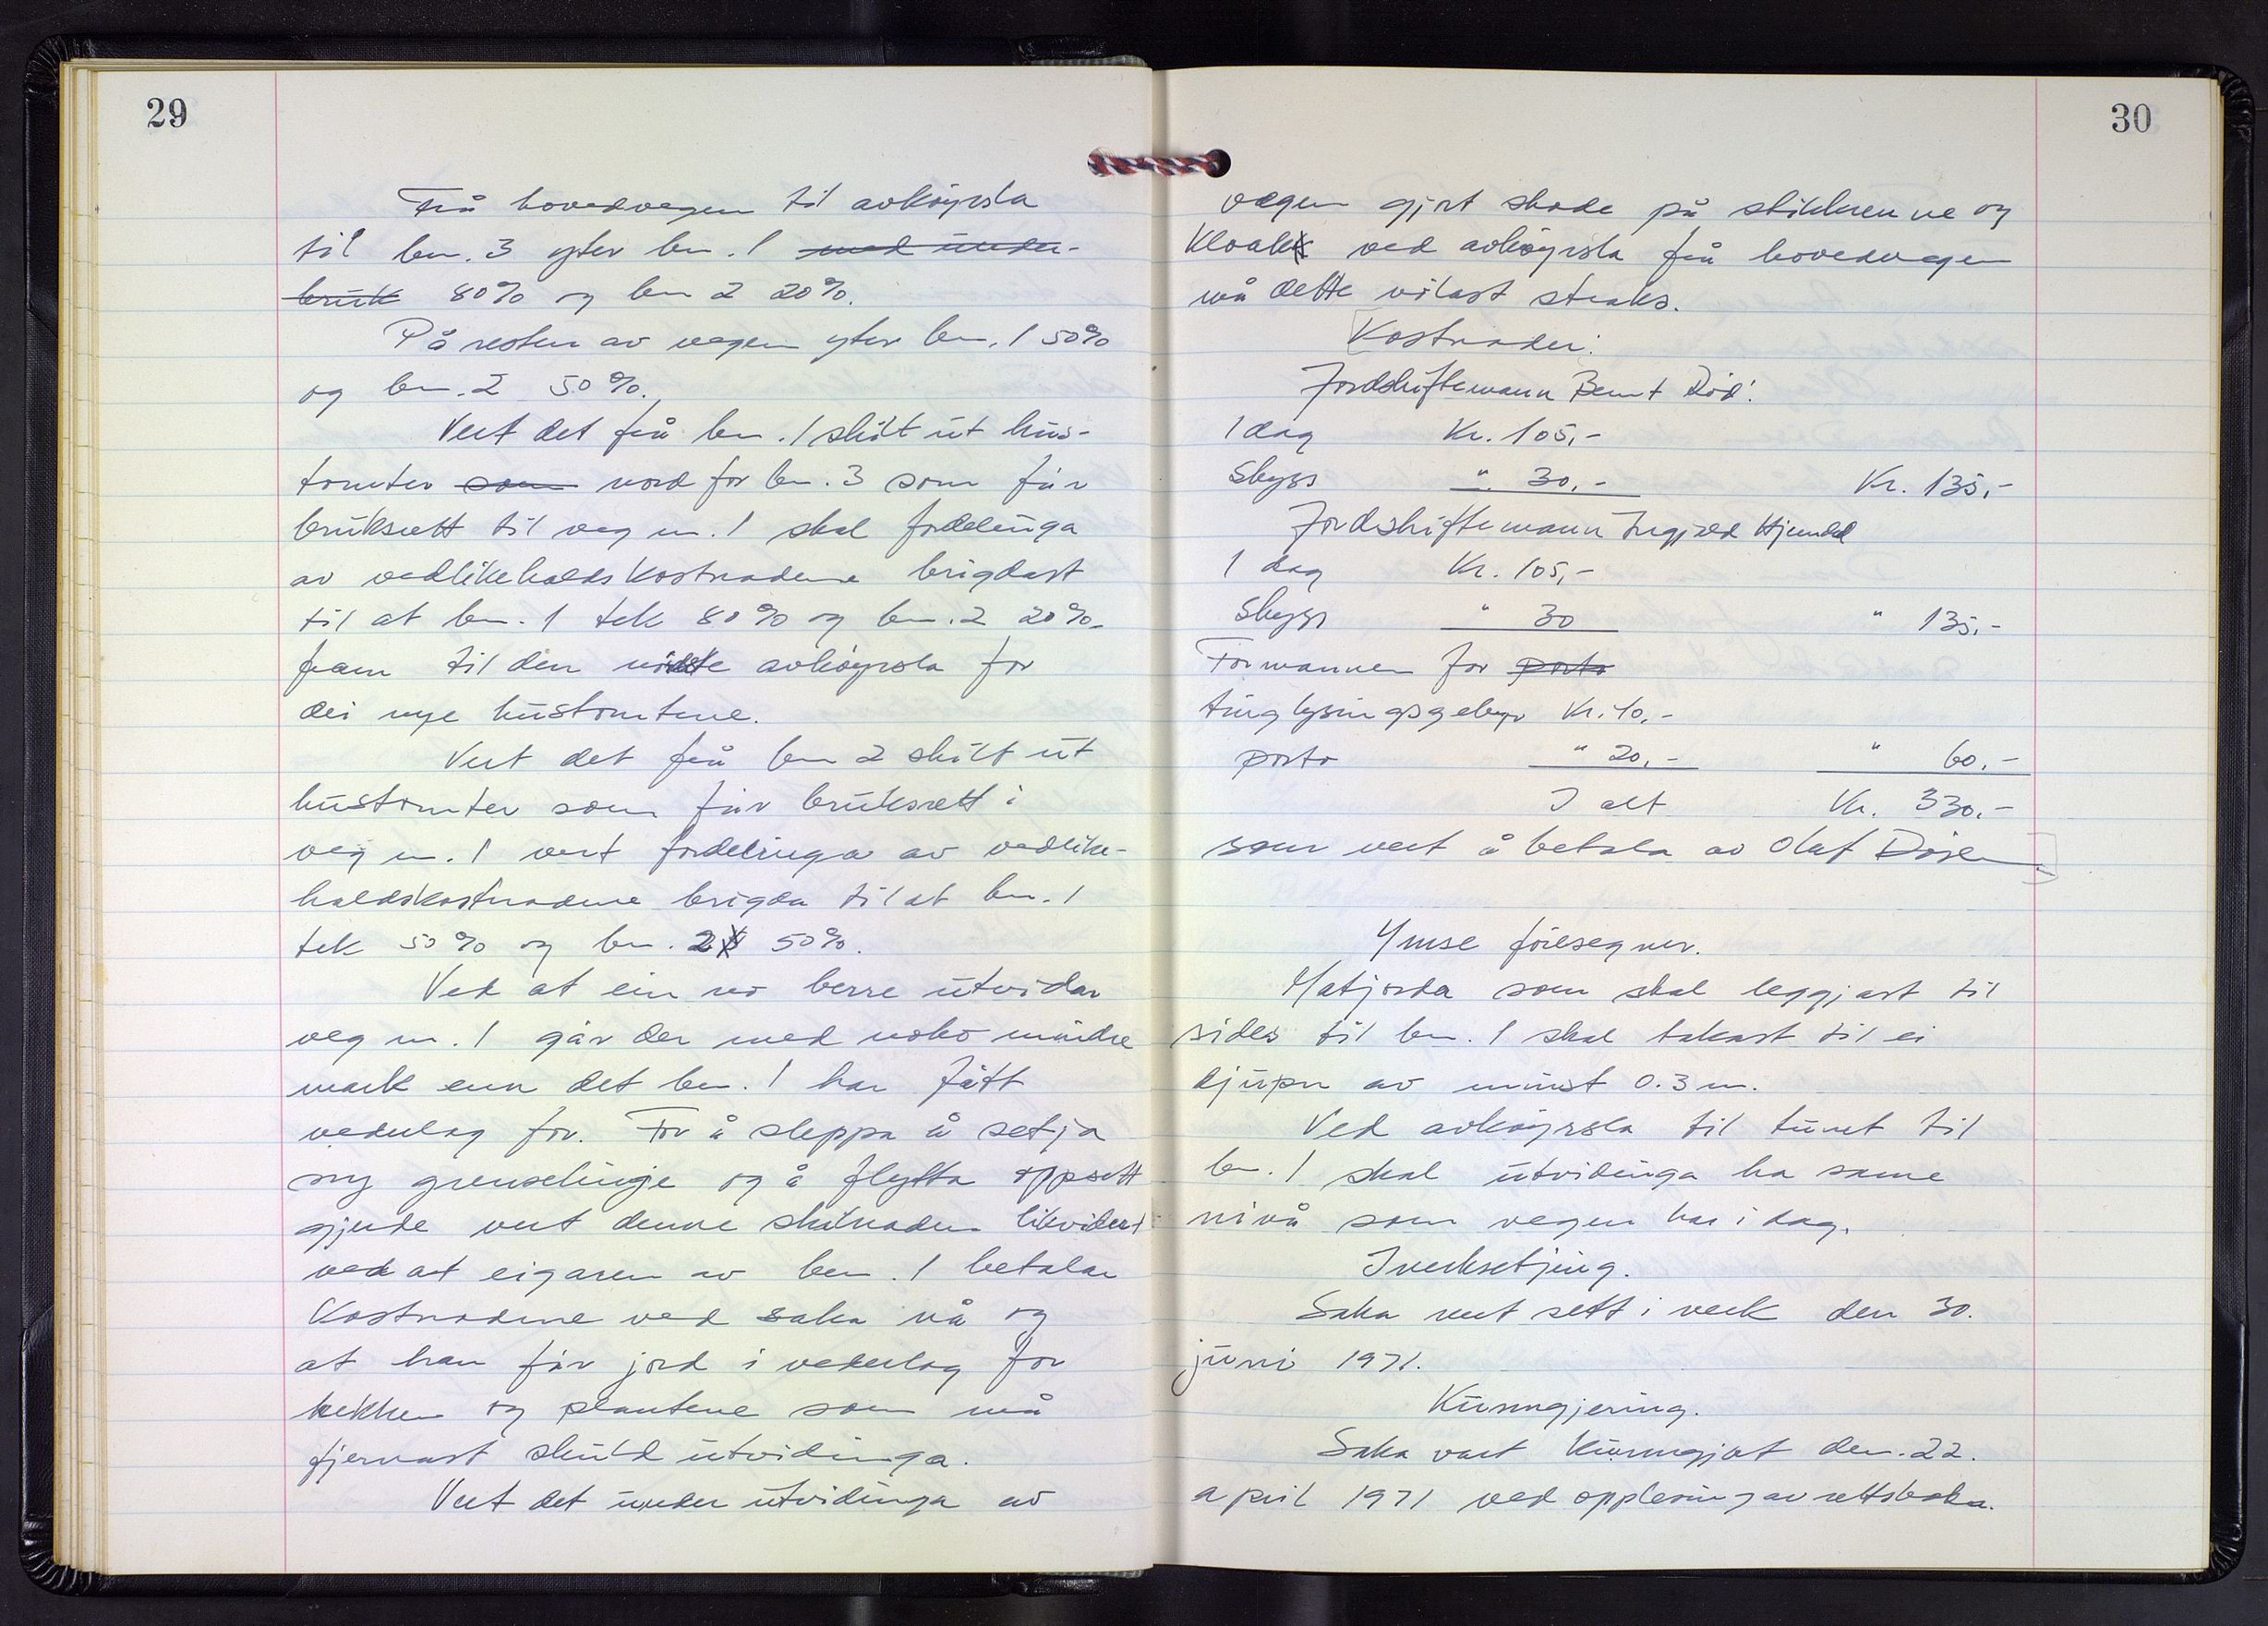 29
Frå hovedvegen til avkøyrsla
til bn. 3 yter bn. 1 med under-
bruk 80% og bn 2 20%.
På resten av vegen yter bn. 1 50%
og bn. 2 50%.
Vert det frå bn. 1 skilt ut hus-
tomter som nord for bn. 3 som får
bruksrett til veg nr. 1 skal fordelinga
av vedlikehaldskostnadene brigdast
til at bn. 1 tek 80% og bn. 2 20%
fram til den nørdste avkøyrsla for
dei nye hustomtene.
Vert det frå bn 2 skilt ut
hustomter som får bruksrett i
veg nr. 1 vert fordelinga av vedlike-
haldskostnadene brigda til at bn. 1
tek 50% og bn. 2 50%.
Ved at ein no berre utvidar
veg nr. 1 går der med noko mindre
mark enn det bn. 1 har fått
vederlag for. For å sleppa å setja
ny grenselinje og å flytta oppsett
gjerde vert denne skilnaden likvidert
ved at eigaren av bn. 1 betalar
kostnadene ved saka nå og
at han får jord i vederlag for
hekken og plantene som må
fjernast skuld utvidinga.
Vert det under utvidinga av
30
vegen gjort skade på stikkrenne og
kloakk ved avkøyrsla frå hovedvegen
må dette vølast straks.
Kostnader:
Jordskiftemann Bernt Død:
1 dag Kr. 105,-
Skyss " 30,- Kr. 135,-
Jordskiftemann Ingjald Hjemdal
1 dag Kr. 105,-
Skyss " 30 " 135,-
Formannen for porto
tinglysingsgebyr Kr. 40,-
porto " 20,- " 60,-
I alt Kr. 330,-
som vert å betala av Olaf
Ymse føresegner.
Matjorda som skal leggjast til
sides til bn. 1 skal takast til ei
djupn av minst 0.3 m.
Ved avkøyrsla til tunet til
bn. 1 skal utvidinga ha same
nivå som vegen har i dag.
Iverksetjing.
Saka vert sett i verk den 30.
juni 1971.
Kunngjering.
Saka vart kunngjort den. 22.
april 1971 ved opplesing av rettsboka.